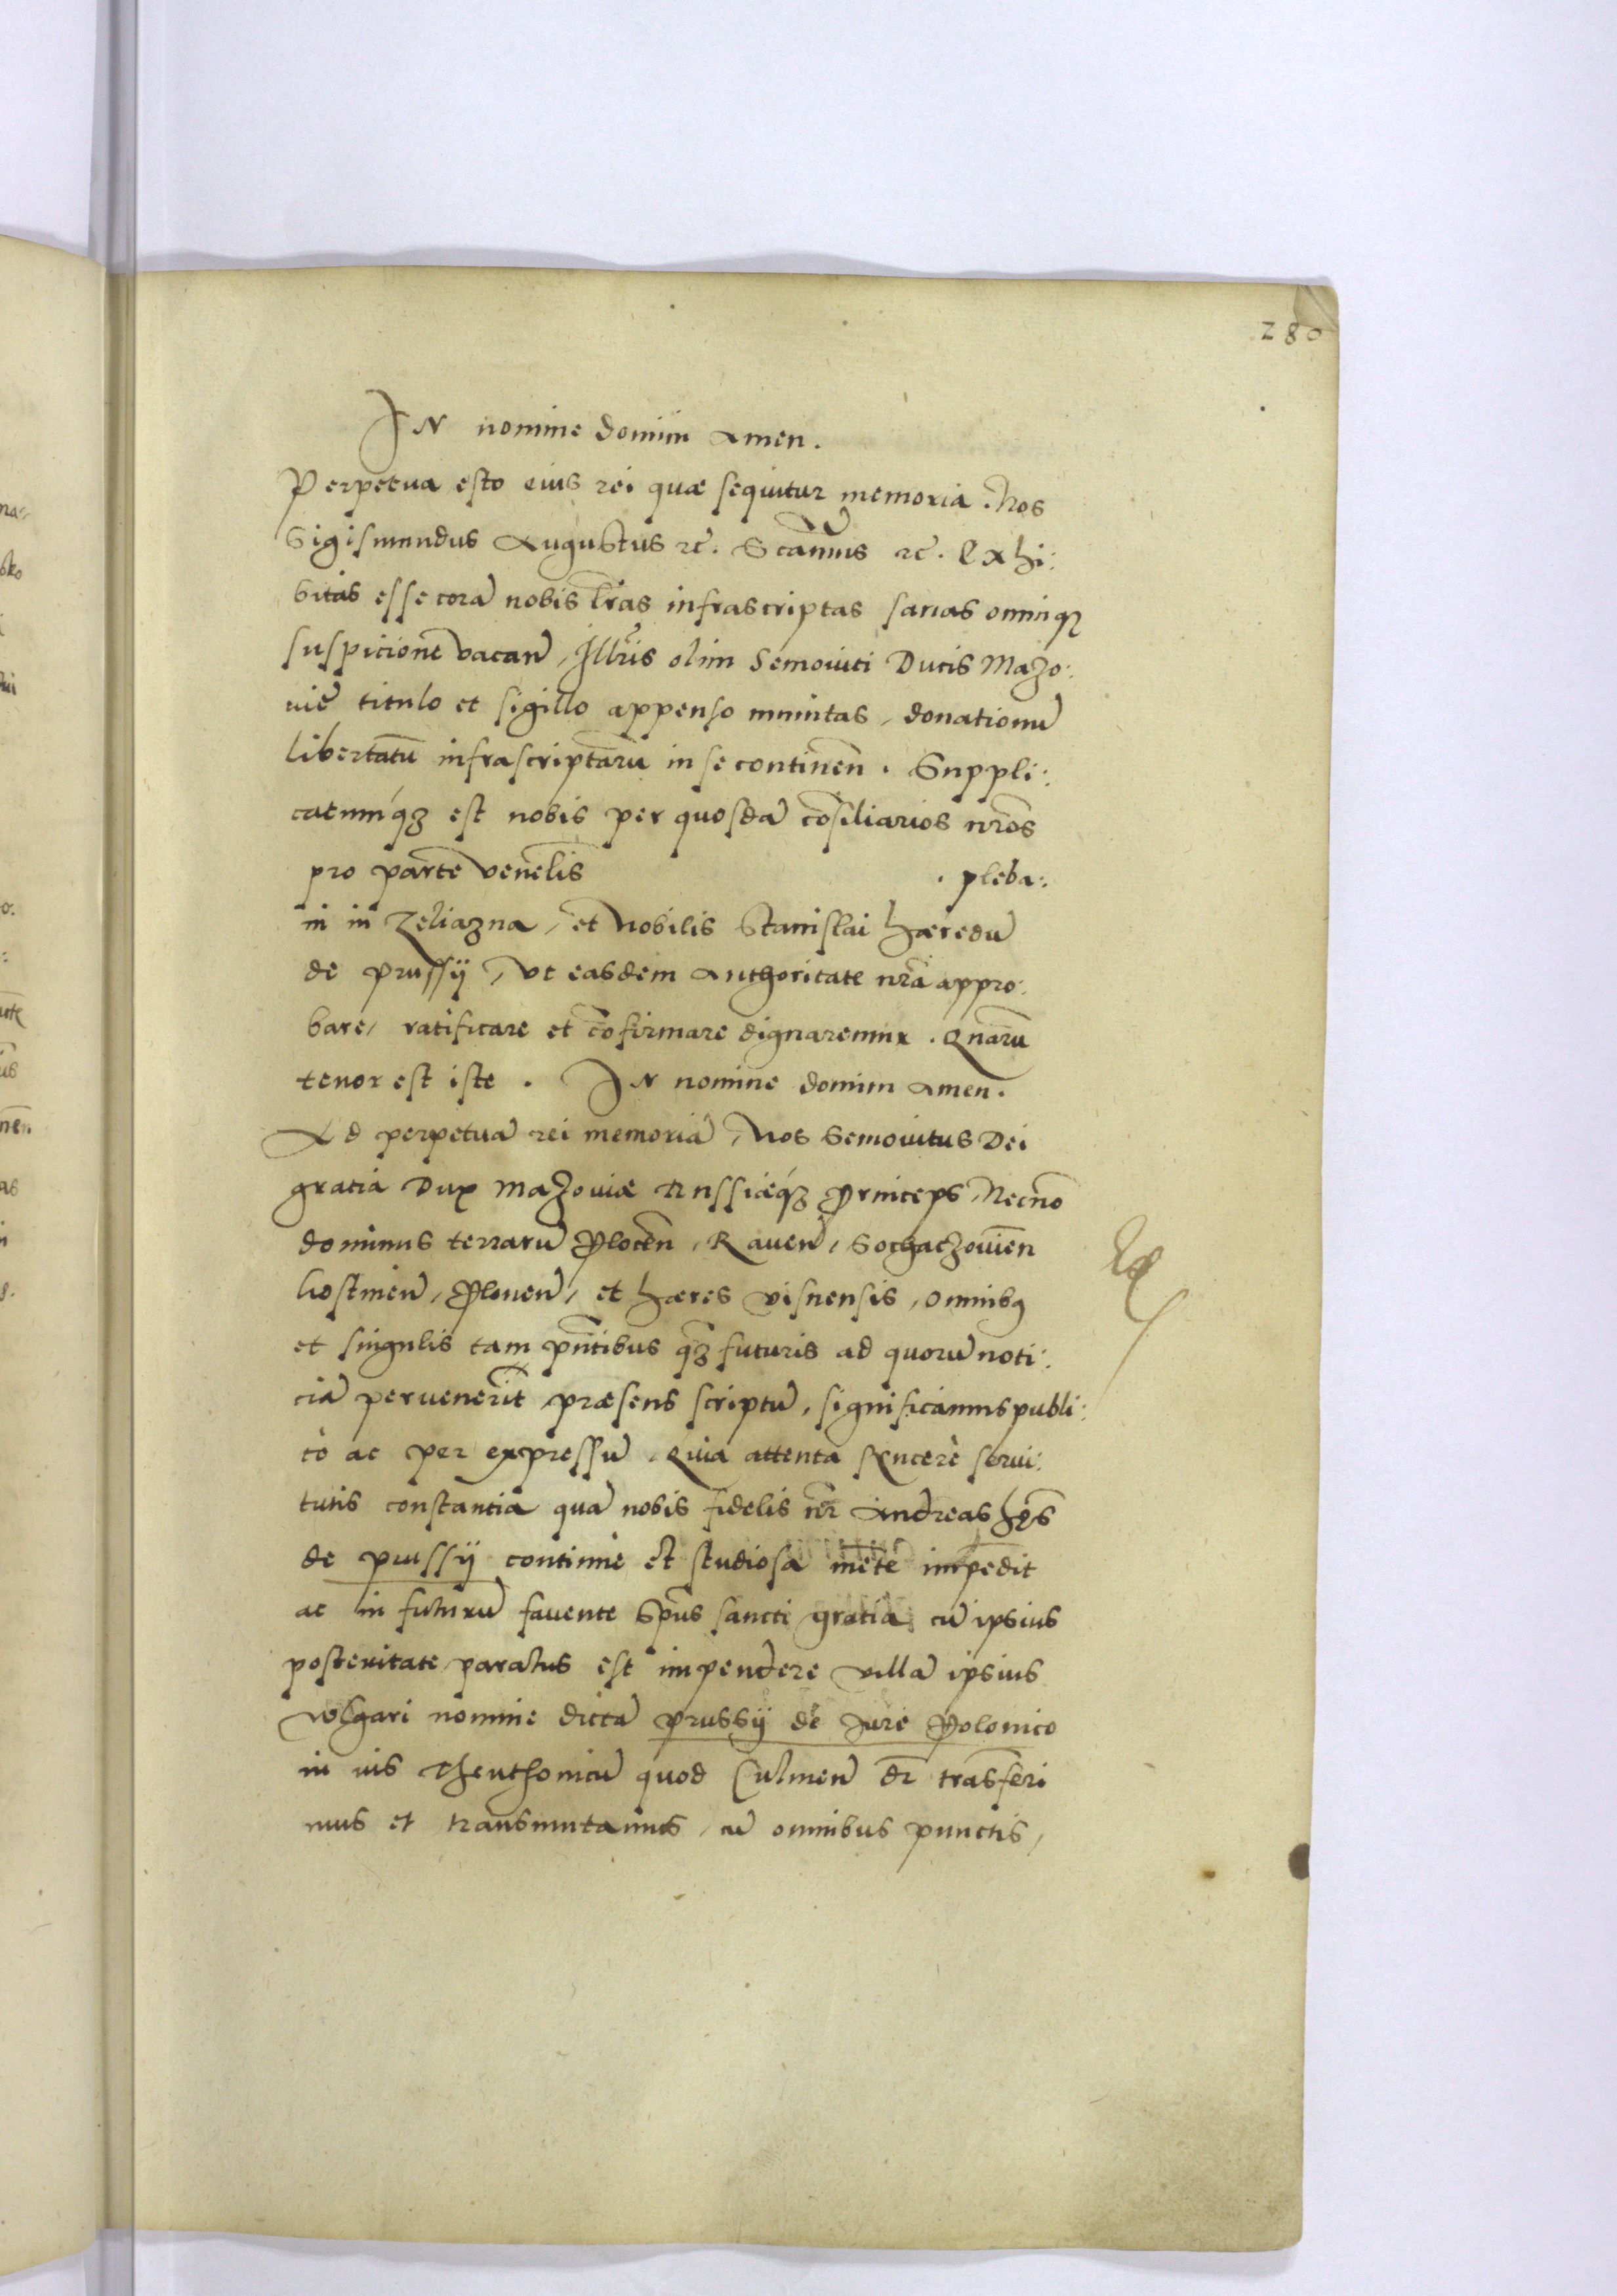 280
IN nomine domini Amen.
Perpetua esto eius rei quæ sequitur memoria. Nos
Sigismundus Augustus etc̃. Significamus etc̃. Exhi:
bitas esse corã nobis lr̃as infrascriptas sanas omniq3
suspicionẽ vacañ, Illr̃is olim Semoviti Ducis Mazo:
viẽ titulo et sigillo appenso munitas, donationũ
libertatũ infrascriptarũ in se continẽn. Suppli:
catumq3 est nobis per quosdã cõsiliarios nr̃os
pro parte venẽlis . pleba:
ni in Zeliazna, et Nobilis Stanislai hæredũ
de prussij, ut easdem authoritate nr̃a appro:
bare, ratificare et cõfirmare dignaremur. Quarũ
tenor est iste. IN nomine domini Amen.
Ad perpetuã rei memoriã, Nos Semovitus Dei
gratia Dux Mazoviæ Russiæq3 Princeps, Necnõ
dominus terrarũ Plocẽn, Raveñ, Sochaczoviẽn
Gostineñ, Ploneñ, et hæres visnensis, omnibq
et singulis tam pñtibus q̃3 futuris ad quorũ noti:
ciã pervenerit præsens scriptũ, significamus publi:
cè ac per expressũ, Quia attenta syncerè servi:
tutis constantia quã nobis fidelis nr̃ Andreas hẽs
de prussij continuè et studiosa mẽte impẽdit
ac in futurũ favente Sp̃us sancti gratia, cũ ipsius
posteritate paratus est impendere villã ipsius
volgari nomine dictã prussij de Jure Polonico
in ius Theuthonicũ quod Culmeñ dr̃ trãsferi
mus et transmutamus, cũ omnibus punctis,